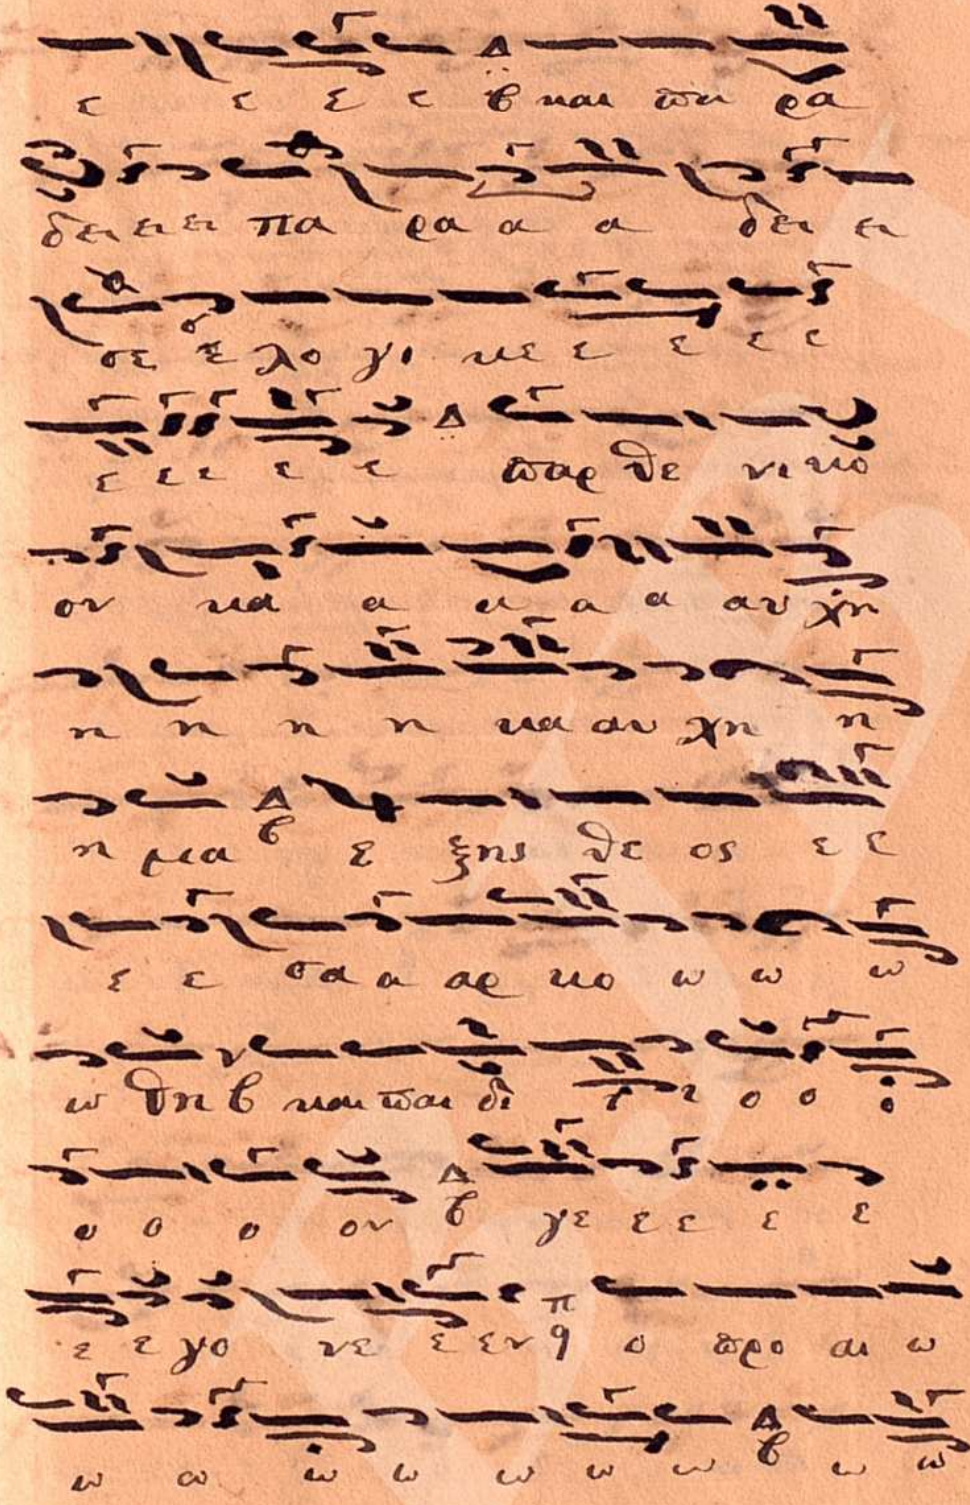 ε ε ε ε β και πα ρα
δει ει ει πα ρα α α δει ει
σε ε λο γι κε ε ε ε ε
ε ε ε ε ε παρ θε νι κο
ον κα α α α α αυ χη
η η η η κα αυ χη η
η μα β ε ξης θε ος ε ε
ε ε σα α αρ κο ω ω ω
ω θη β και παι δι ι ι ο ο ο
ο ο ο ον β γε ε ε ε ε
ε ε γο νε ε εν q ο προ αι ω
ω ω ω ω ω ω ω β ω ω